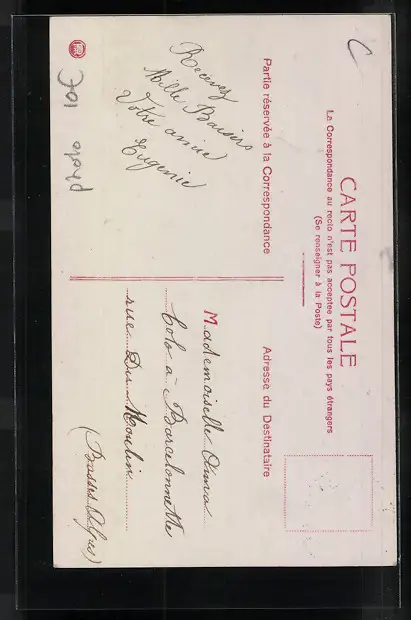 CARTE POSTALE
La Correspondance au recto n'est pas acceptée par tous les pays étrangers
(Se renseigner à la Poste)
Partie réservée à la Correspondance
Adresse du Destinataire
Recevez
Mille Baisers
Votre amie
Eugenie
Mademoiselle
à Barcelonnette
rue Du Moulin
(Basses Alpes)
photo 10€
C